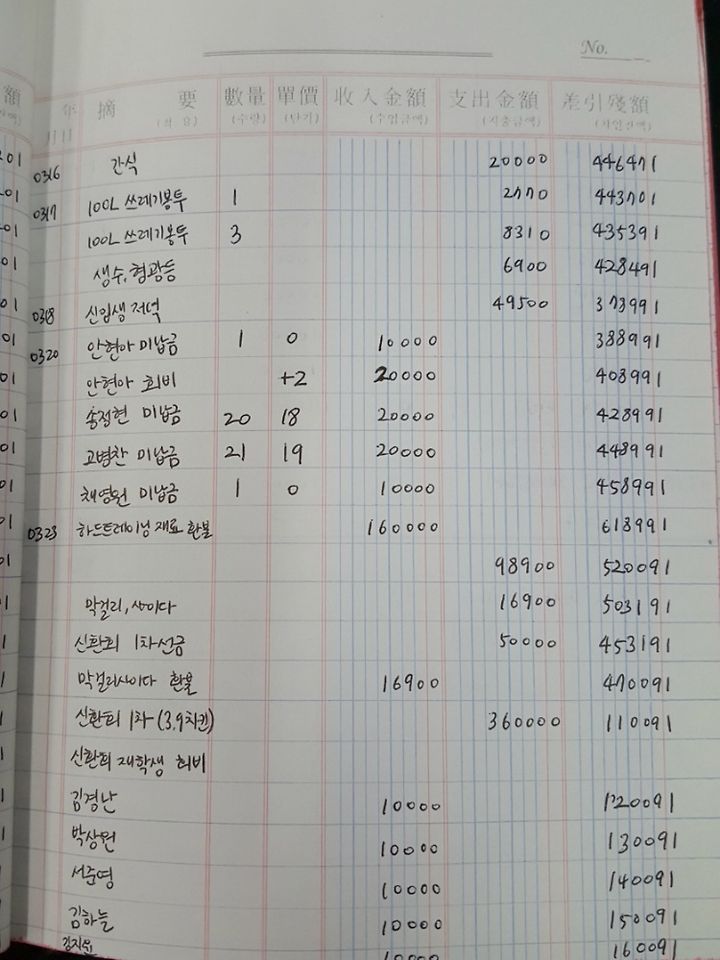 No.
年 摘 要 數量 單價 收入金額 支出金額 差引殘額
月日 (적 요) (수량) (단가) (수입금액) (지출금액) (차인잔액)
0316 간식 20000 446471
0317 100L 쓰레기봉투 1 2770 443701
100L 쓰레기봉투 3 8310 435391
생수, 형광등 6900 428491
0318 신입생 저녁 49500 378991
0320 안현아 미납금 1 0 10000 388991
안현아 회비 +2 20000 408991
송정현 미납금 20 18 20000 428991
고병찬 미납금 21 19 20000 448991
채영원 미납금 1 0 10000 458991
0323 하드트레이닝 재료 환불 160000 618991
98900 520091
막걸리, 사이다 16900 503191
신환회 1차선금 50000 453191
막걸리사이다 환불 16900 470091
신환회 1차 (3.9치킨) 360000 110091
신환회 재학생 회비
김경난 10000 120091
박상원 10000 130091
서준영 10000 140091
김하늘 10000 150091
김지원 10000 160091